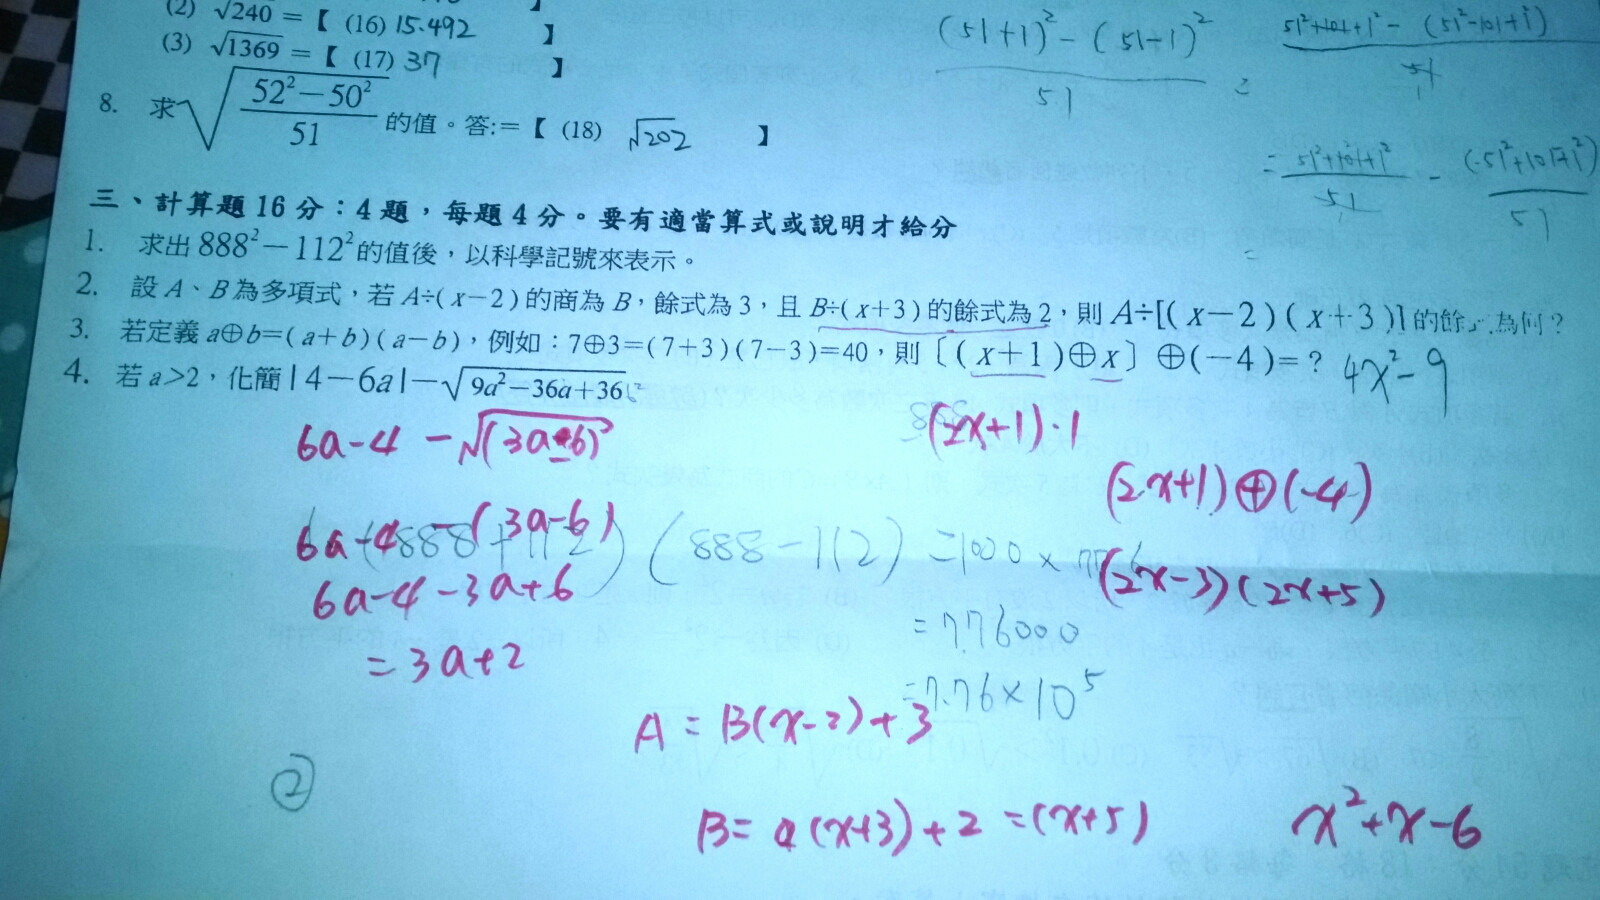 (2) √240 = 【 (16) 15.492 】
(3) √1369 = 【 (17) 37 】
8. 求√((52²－50²)/51) 的值。答:=【 (18) √202 】
(51+1)² - (51-1)²
51
=
51²+101+1² - (51²-101+1²)
51
= 51²+101+1² / 51 - (-51²+101+1²) / 51
=
三、計算題16分：4題，每題4分。要有適當算式或說明才給分
1. 求出888²－112²的值後，以科學記號來表示。
2. 設A、B為多項式，若A÷(x－2)的商為B，餘式為3，且B÷(x＋3)的餘式為2，則A÷[(x－2)(x＋3)]的餘式為何？
3. 若定義a⊕b=(a＋b)(a－b)，例如：7⊕3=(7＋3)(7－3)=40，則〔(x＋1)⊕x〕⊕(－4)=？ 4x²-9
4. 若a>2，化簡|4－6a|－√(9a²－36a＋36)
6a-4 -√(3a-6)²
(2x+1)·1
(2x+1)⊕(-4)
6a-4 -(3a-6)
(888+112)(888-112) =1000×776
(2x-3)(2x+5)
6a-4-3a+6
=776000
=3a+2
=7.76×10⁵
A = B(x-2)+3
②
B= a(x+3)+2 =(x+5)
x²+x-6